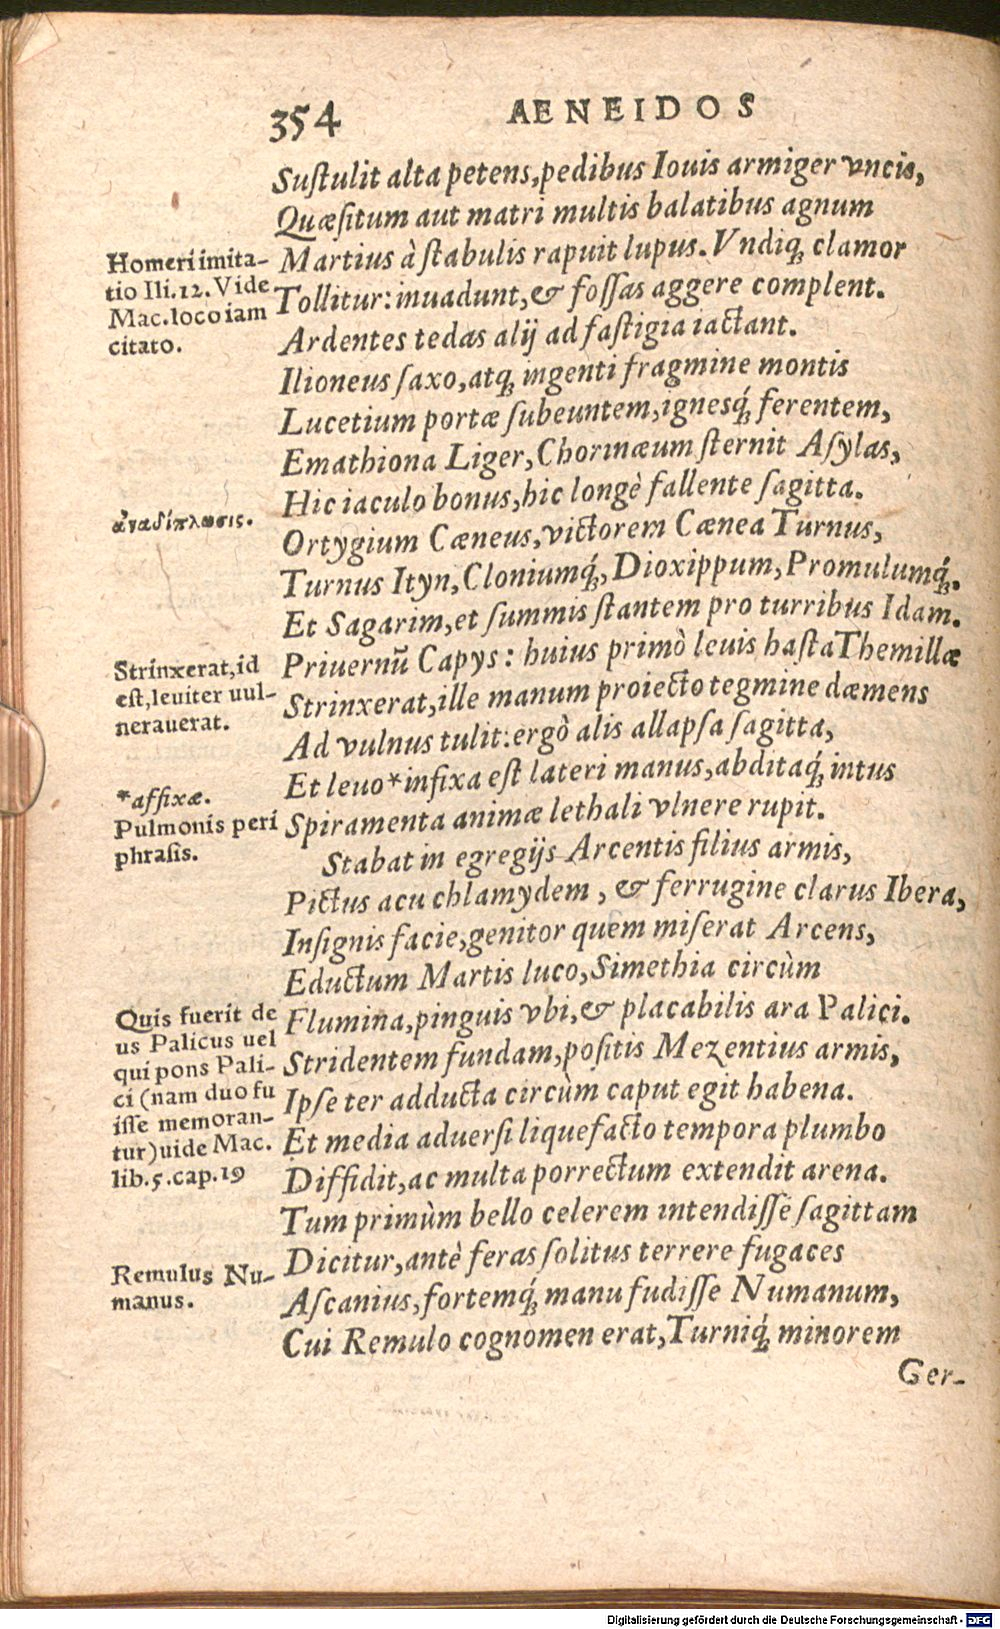 354 AENEIDOS
Suſtulit alta petens, pedibus Iouis armiger vncis,
Quæſitum aut matri multis balatibus agnum
Martius à ſtabulis rapuit lupus. Vndiq; clamor
Tollitur: inuadunt, & foſſas aggere complent.
Ardentes tedas alij ad faſtigia iactant.
Ilioneus ſaxo, atq; ingenti fragmine montis
Lucetium portæ ſubeuntem, ignesq́; ferentem,
Emathiona Liger, Chorinæum ſternit Aſylas,
Hic iaculo bonus, hic longè fallente ſagitta.
Ortygium Cæneus, victorem Cænea Turnus,
Turnus Ityn, Cloniumq́;, Dioxippum, Promulumq́;.
Et Sagarim, et ſummis ſtantem pro turribus Idam.
Priuernũ Capys: huius primò leuis haſta Themillæ
Strinxerat, ille manum proiecto tegmine dæmens
Ad vulnus tulit: ergò alis allapſa ſagitta,
Et leuo*infixa eſt lateri manus, abditaq́; intus
Spiramenta animæ lethali vlnere rupit.
Stabat in egregijs Arcentis filius armis,
Pictus acu chlamydem, & ferrugine clarus Ibera,
Inſignis facie, genitor quem miſerat Arcens,
Eductum Martis luco, Simethia circùm
Flumina, pinguis vbi, & placabilis ara Palici.
Stridentem fundam, poſitis Mezentius armis,
Ipſe ter adducta circùm caput egit habena.
Et media aduerſi liquefacto tempora plumbo
Diffidit, ac multa porrectum extendit arena.
Tum primùm bello celerem intendiſſe ſagittam
Dicitur, antè feras ſolitus terrere fugaces
Aſcanius, fortemq́; manu fudiſſe Numanum,
Cui Remulo cognomen erat, Turniq́; minorem
Ger-
Homeri imita-
tio Ili. 12. Vide
Mac. loco iam
citato.
ἀναδίπλωσις.
Strinxerat, id
eſt, leuiter uul-
nerauerat.
*affixæ.
Pulmonis peri
phraſis.
Quis fuerit de
us Palicus uel
qui pons Pali-
ci (nam duo fu
iſſe memoran-
tur) uide Mac.
lib. 5. cap. 19
Remulus Nu-
manus.
Digitalisierung gefördert durch die Deutsche Forschungsgemeinschaft - DFG